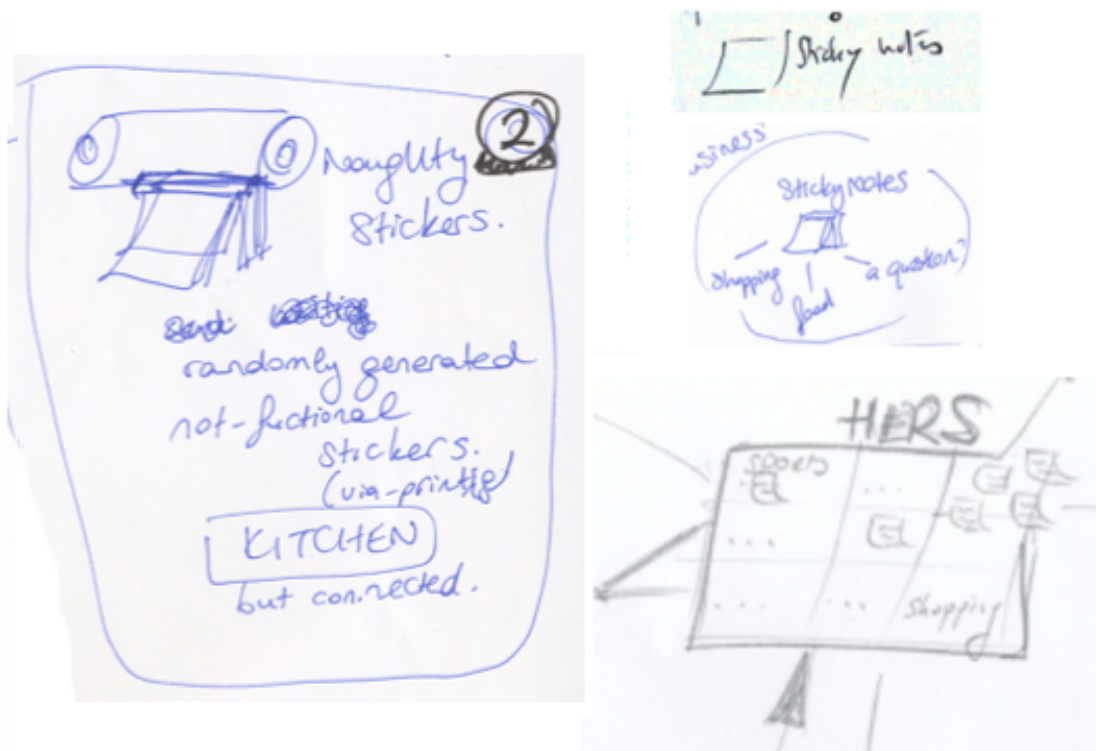 2
Naughty
Stickers.
randomly generated
not-fuctional
stickers.
KITCHEN
but connected.
Sticky notes
usiness
Sticky notes
shopping
food
a question?
HERS
...
...
... ...
Shopping